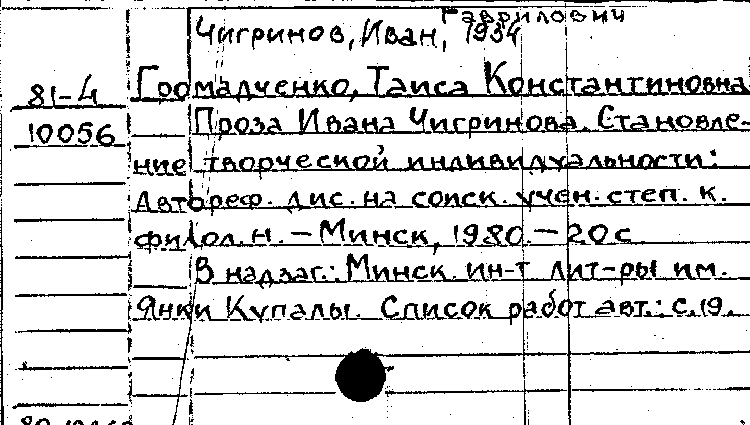 Гаврилович
Чигринов, Иван, 1934
81-4 Громадченко, Таиса Константиновна
10056 Проза Ивана Чигринова. Становле-
ние творческой индивидуальности:
Автореф. дис. на соиск. учен. степ. к.
филол. н. – Минск, 1980. – 20 с.
В надзаг.: Минск. ин-т лит-ры им.
Янки Купалы. Список работ авт.: с. 19.